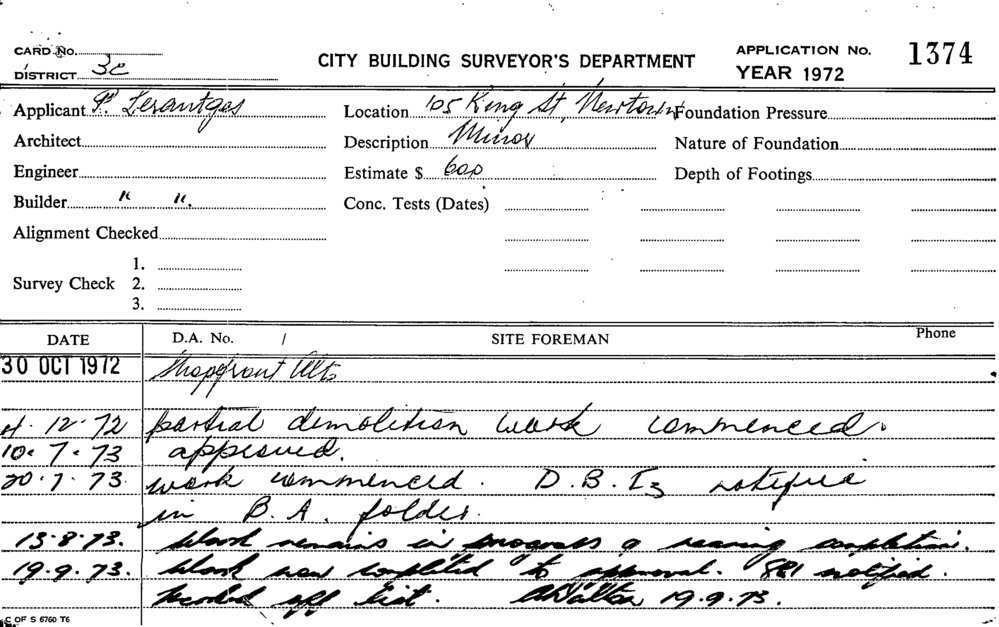 CARD No.
DISTRICT 3C
CITY BUILDING SURVEYOR'S DEPARTMENT
APPLICATION No. 1374
YEAR 1972
Applicant P. Lerantges
Location 105 King St, Newtown
Foundation Pressure
Architect
Description Minor
Nature of Foundation
Engineer
Estimate $ 600
Depth of Footings
Builder " ".
Conc. Tests (Dates)
Alignment Checked
Survey Check
1.
2.
3.
DATE
D.A. No. /
SITE FOREMAN
Phone
30 OCT 1972 Shopfront Alts
4. 12. 72 partial demolition work commenced.
10. 7. 73 approved.
20. 7. 73. work commenced. D.B.I3 notified
in B.A. folder.
13.8.73. Work remains in progress & nearing completion.
19.9.73. Work now completed to approval. 881 notified.
off list. 19.9.73.
C OF S 6760 T6